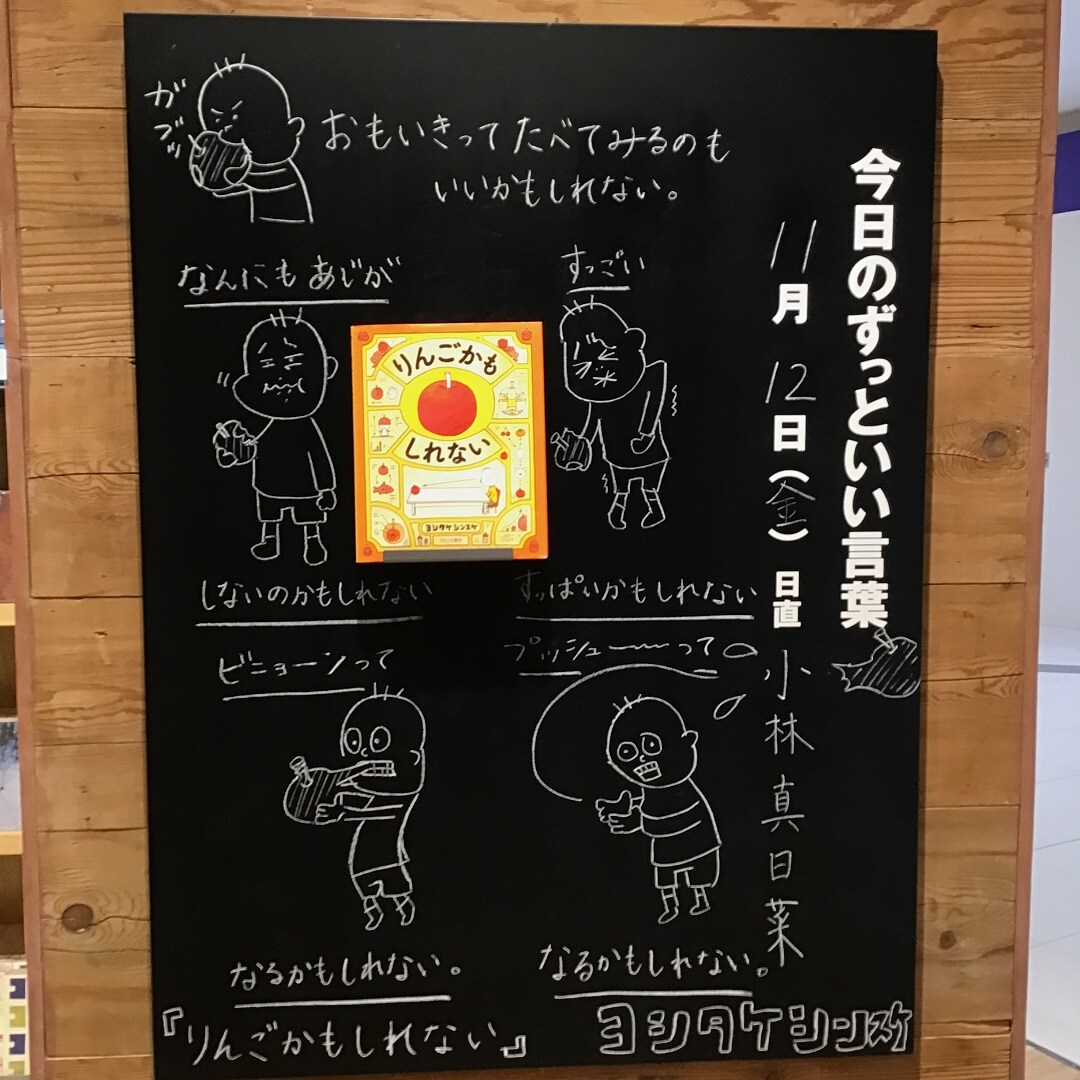 今日のずっといい言葉
11月12日(金) 日直 小林真日菜
ガブッ
おもいきってたべてみるのも
いいかもしれない。
なんにもあじが
しないのかもしれない
すっごい
すっぱいかもしれない
りんごかも
しれない
ヨシタケシンスケ
ビニョーンって
なるかもしれない。
プッシューーって
なるかもしれない。
『りんごかもしれない』
ヨシタケシンスケ